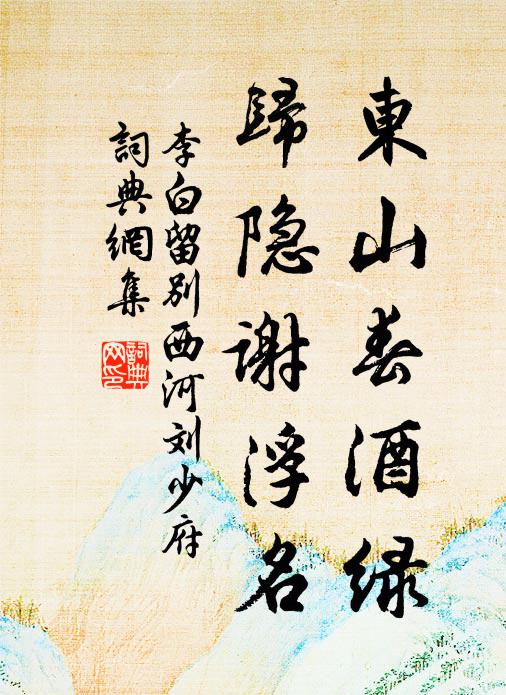 東山春酒緑
歸隐谢浮名
李白留别西河刘少府
詞典網集
詞典网印